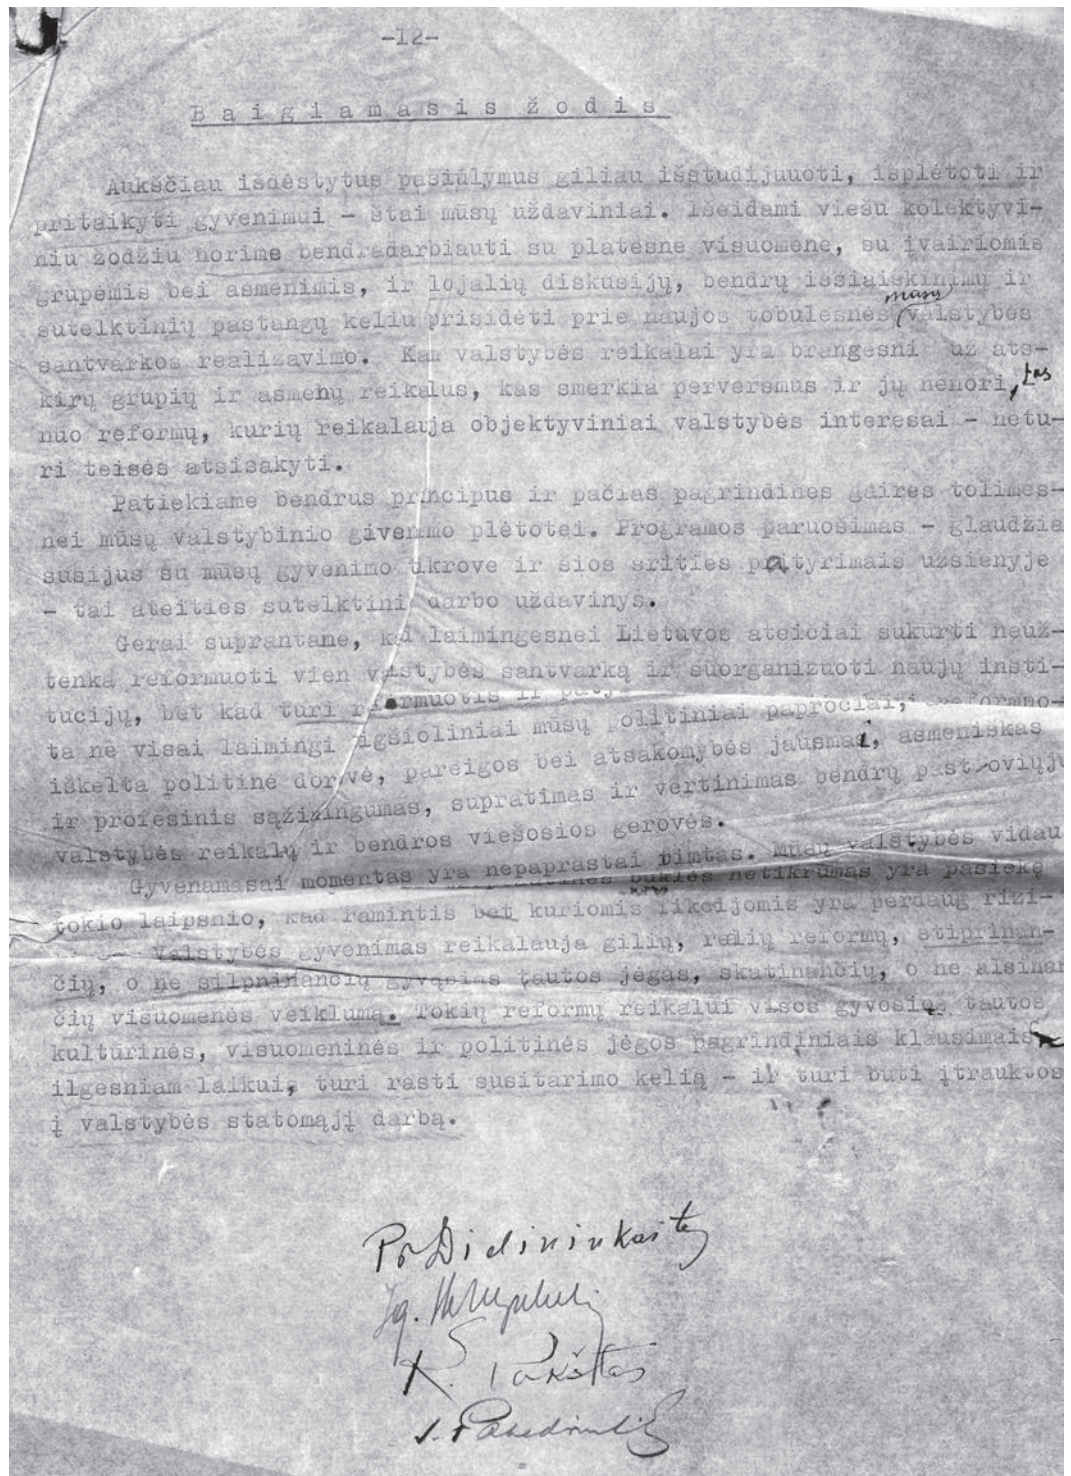 -12-
Baigiamasis žodis
Aukščiau išdėstytus pasiūlymus giliau išstudijuoti, išplėtoti ir
pritaikyti gyvenimui - štai mūsų uždaviniai. Išeidami viešu kolektyvi-
niu žodžiu norime bendradarbiauti su platesne visuomene, su įvairiomis
grupėmis bei asmenimis, ir lojalių diskusijų, bendrų išsiaiškinimų ir
sutelktinių pastangų keliu prisidėti prie naujos tobulesnės mūsų valstybės
santvarkos realizavimo. Kam valstybės reikalai yra brangesni už ats-
kirų grupių ir asmenų reikalus, kas smerkia perversmus ir jų nenori, tas
nuo reformų, kurių reikalauja objektyviniai valstybės interesai - netu-
ri teisės atsisakyti.
Patiekiame bendrus principus ir pačias pagrindines gaires tolimes-
nei mūsų valstybinio givenimo plėtotei. Programos paruošimas - glaudžia
susijus su mūsų gyvenimo tikrove ir šios srities patyrimais užsienyje
- tai ateities sutelktini darbo uždavinys.
Gerai suprantame, kad laimingesnei Lietuvos ateičiai sukurti neuž-
tenka reformuoti vien valstybės santvarką ir suorganizuoti naujų insti-
tucijų, bet kad turi reformuotis ir papročiai,
ta ne visai laimingi ligšioliniai mūsų politiniai
iškelta politinė dorovė, pareigos bei atsakomybės jausmai, asmeniškas
ir profesinis sąžiningumas, supratimas ir vertinimas bendrų pastoviųjų
valstybės reikalų ir bendros viešosios gerovės.
Gyvenamasai momentas yra nepaprastai rimtas. Mūsų valstybės vidau
būklės netikrumas yra pasiekę
tokio laipsnio, kad ramintis bet kuriomis fikcijomis yra perdaug rizi-
Valstybės gyvenimas reikalauja gilių, realių reformų, stiprinan-
čių, o ne silpninančių gyvąsias tautos jėgas, skatinančių, o ne alsinan
čių visuomenės veiklumą. Tokių reformų reikalui visos gyvosios tautos
kultūrinės, visuomeninės ir politinės jėgos pagrindiniais klausimais
ilgesniam laikui, turi rasti susitarimo kelią - ir turi būti įtrauktos
į valstybės statomąjį darbą.
Pr Dielininkaitis
Ig.
K. Pakštas